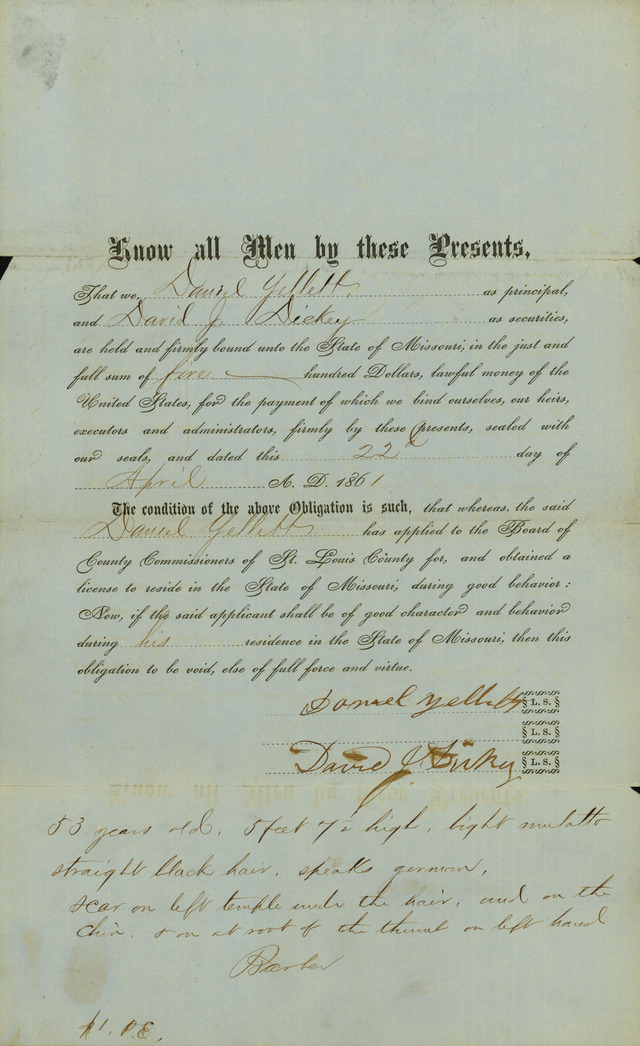 Know all Men by these Presents,
That we, Daniel Yellett, as principal,
and David J. Dickey as securities,
are held and firmly bound unto the State of Missouri, in the just and
full sum of five hundred Dollars, lawful money of the
United States, for the payment of which we bind ourselves, our heirs,
executors and administrators, firmly by these presents, sealed with
our seals, and dated this 22d day of
April A. D. 1861
The condition of the above Obligation is such, that whereas, the said
Daniel Yellett has applied to the Board of
County Commissioners of St. Louis County for, and obtained a
license to reside in the State of Missouri, during good behavior:
Now, if the said applicant shall be of good character and behavior
during his residence in the State of Missouri, then this
obligation to be void, else of full force and virtue.
Daniel Yellett L. S.
L. S.
David J. Dickey L. S.
53 years old, 5 feet 7½ high, light mulatto
straight black hair, speaks german,
scar on left temple under the hair, and on the
chin, & on at root of the thumb on left hand
Barber